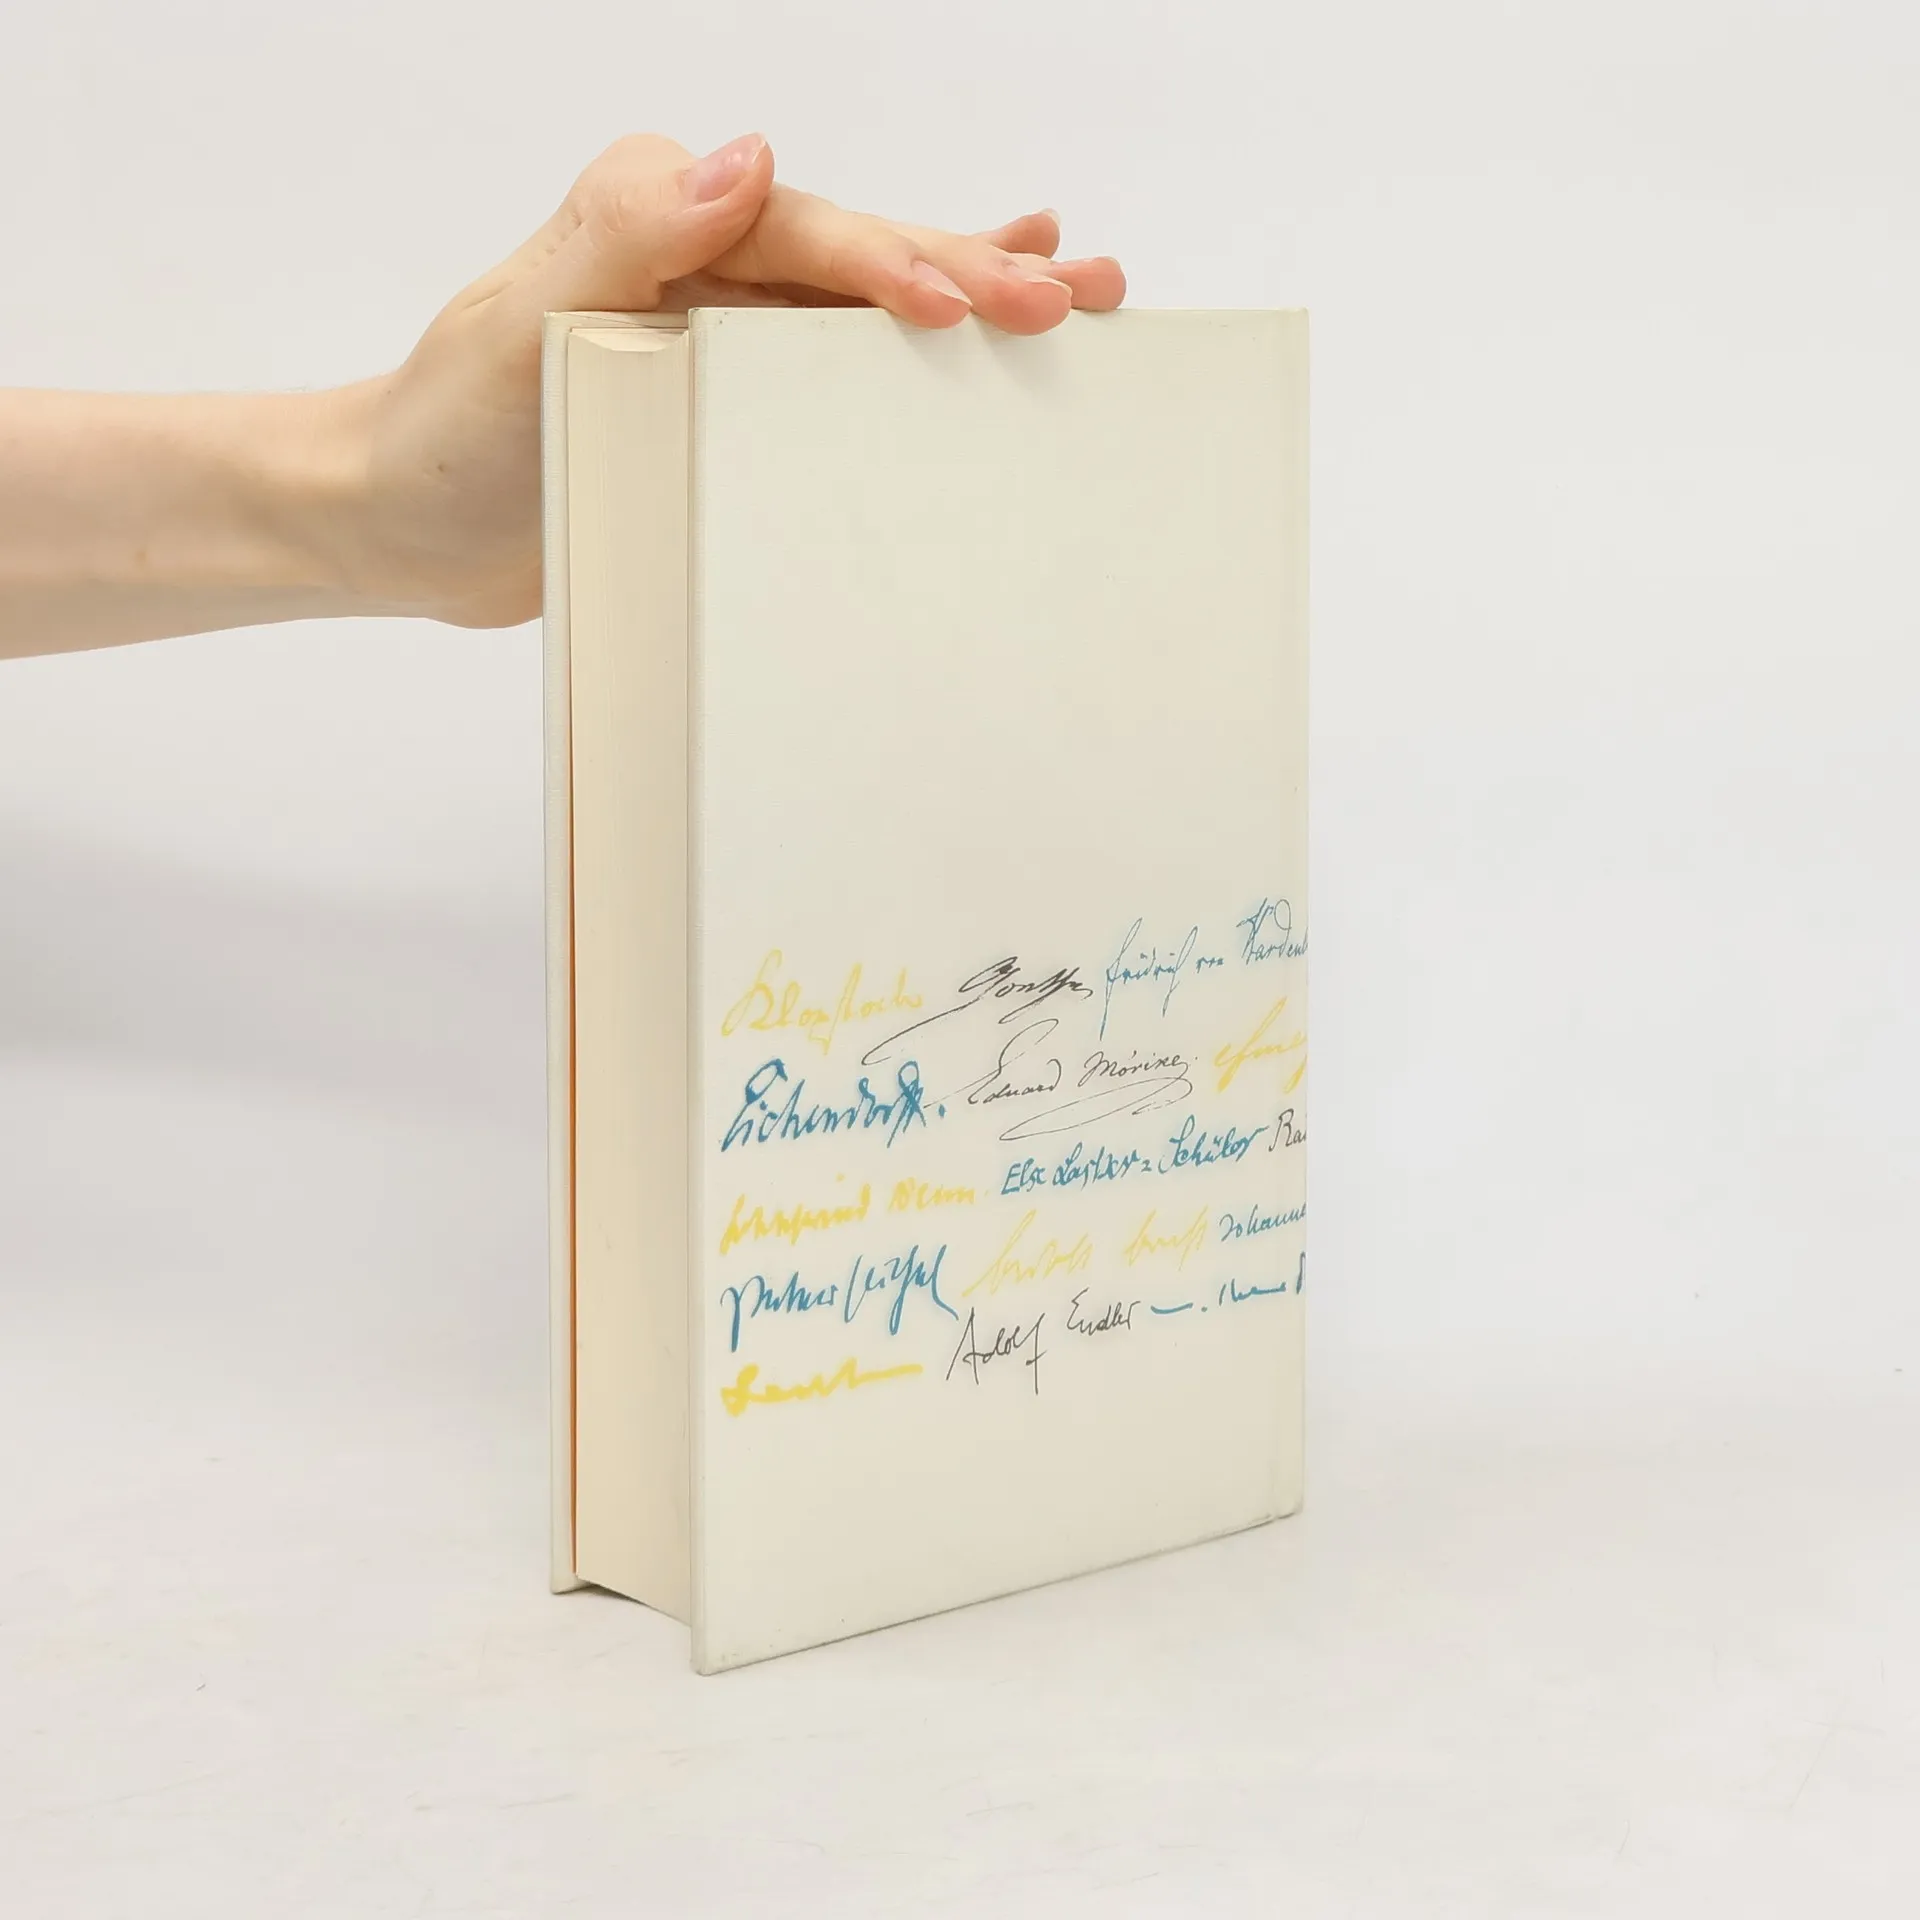 Klopstock Goethe Friedrich von Hardenb
Eichendorff. Eduard Mörike.
Gottfried Benn. Else Lasker=Schüler Rai
Peter Huchel Bertolt Brecht Johannes
Adolf Endler